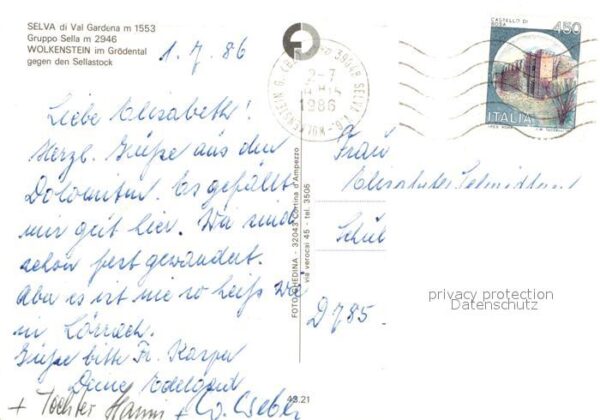 SELVA di Val Gardena m 1553
Gruppo Sella m 2946
WOLKENSTEIN im Grödental
gegen den Sellastock
1.7.86
Liebe Elisabeth!
Herzl. Grüße aus den
Dolomiten. Es gefällt
mir gut hier. Wir sind
schon fest gewandert.
Aber es ist nie so heiß wie
in Lörrach.
Grüße bitte Fr.
Deine Edelgard
+ Tochter Hanni +
FOTO GHEDINA - 32043 Cortina d'Ampezzo
via verocai 45 - tel. 3505
43.21
39048 SELVA
2-7
1986
CASTELLO DI
ROSA
450
ITALIA
Frau
Schül
D 785.
privacy protection
Datenschutz